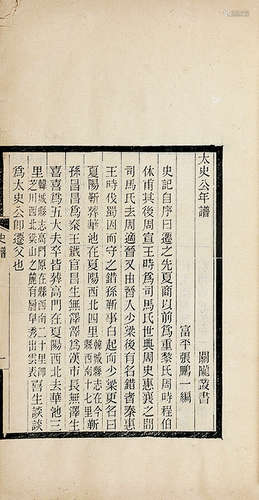 太史公年譜 關隴叢書
富平張鵬一編
史記自序曰遷之先夏商以前為重黎氏周時程伯
休甫其後周宣王時為司馬氏世典周史惠襄之閒
司馬氏去周適晉又由晉人少梁後有名錯者秦惠
王時伐蜀因而守之錯孫靳事白起而少梁更名曰
夏陽靳葬華池在夏陽西北四里韓城縣志在今縣西南十七里靳
孫昌昌為秦王鐵官昌生無澤無澤為漢市長無澤生
喜喜為五大夫卒皆葬高門在夏陽西北去華池三
里韓城縣志高門原在縣西南二十里芝川西北裳山之麓有層阜秀出雲表喜生談談
為太史公即遷父也
史譜